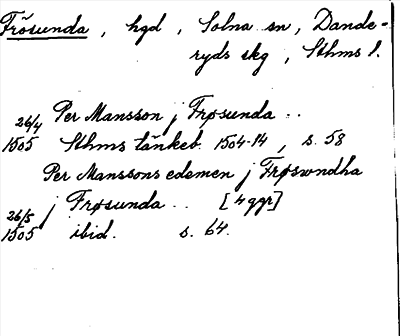 Frösunda, hgd, Solna sn, Dande-
ryds skg, Sthms l.
26/4 Per Mansson j Frøsunda ..
1505 Sthms tänkeb. 1504-14, s. 58
Per Manssons edemen j Frøswndha
26/5 j Frøsunda .. [4 ggr]
1505 ibid. s. 64.